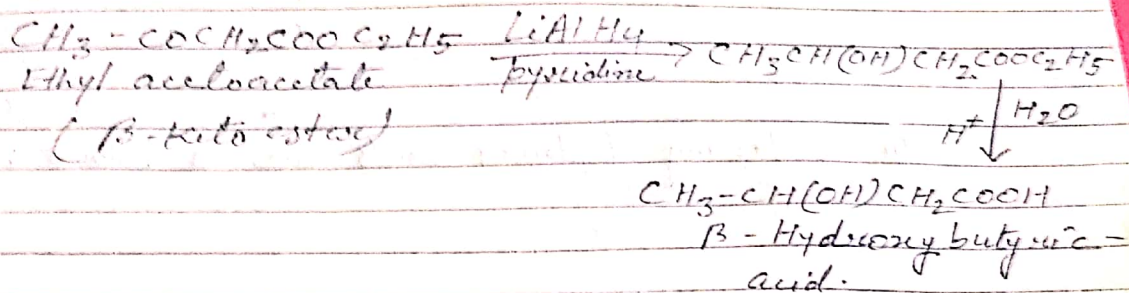 CH3-COCH2COOC2H5 LiAlH4 → CH3CH(OH)CH2COOC2H5
Ethyl acetoacetate pyridine
(β-keto ester) H+ ↓ H2O
CH3-CH(OH)CH2COOH
β-Hydroxy butyric-
acid.